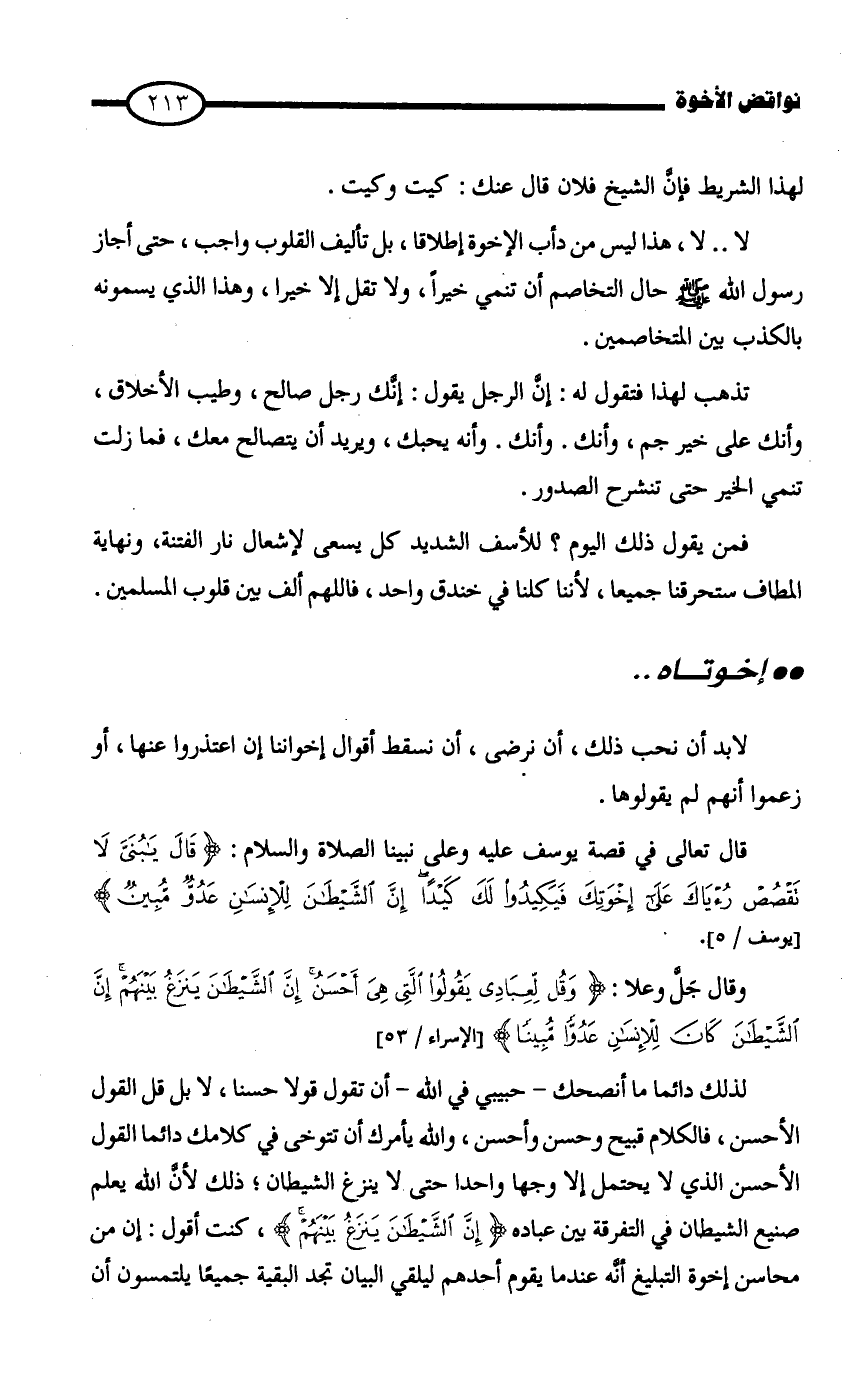 نواقض الأخوة
٢١٣
لهذا الشريط فإنَّ الشيخ فلان قال عنك : كيت وكيت .
لا .. لا ، هذا ليس من دأب الإخوة إطلاقا ، بل تأليف القلوب واجب ، حتى أجاز
رسول الله ﷺ حال التخاصم أن تنمي خيراً ، ولا تقل إلا خيرا ، وهذا الذي يسمونه
بالكذب بين المتخاصمين .
تذهب لهذا فتقول له : إنَّ الرجل يقول : إنَّك رجل صالح ، وطيب الأخلاق ،
وأنك على خير جم ، وأنك . وأنك . وأنه يحبك ، ويريد أن يتصالح معك ، فما زلت
تنمي الخير حتى تنشرح الصدور .
فمن يقول ذلك اليوم ؟ للأسف الشديد كل يسعى لإشعال نار الفتنة، ونهاية
المطاف ستحرقنا جميعا ، لأننا كلنا في خندق واحد ، فاللهم ألف بين قلوب المسلمين .
●● إخـوتـــاه ..
لابد أن نحب ذلك ، أن نرضى ، أن نسقط أقوال إخواننا إن اعتذروا عنها ، أو
زعموا أنهم لم يقولوها .
قال تعالى في قصة يوسف عليه وعلى نبينا الصلاة والسلام : ﴿ قَالَ يَٰبُنَىَّ لَا
نَقۡصُصۡ رُءۡيَاكَ عَلَىٰٓ إِخۡوَتِكَ فَيَكِيدُواْ لَكَ كَيۡدًاۖ إِنَّ ٱلشَّيۡطَٰنَ لِلۡإِنسَٰنِ عَدُوّٞ مُّبِينٞ ﴾
[يوسف / ٥].
وقال جَلَّ وعلا : ﴿ وَقُل لِّعِبَادِى يَقُولُواْ ٱلَّتِى هِىَ أَحۡسَنُۚ إِنَّ ٱلشَّيۡطَٰنَ يَنزَغُ بَيۡنَهُمۡۚ إِنَّ
ٱلشَّيۡطَٰنَ كَانَ لِلۡإِنسَٰنِ عَدُوّٗا مُّبِينٗا ﴾ [الإسراء / ٥٣]
لذلك دائما ما أنصحك – حبيبي في الله – أن تقول قولا حسنا ، لا بل قل القول
الأحسن ، فالكلام قبيح وحسن وأحسن ، والله يأمرك أن تتوخى في كلامك دائما القول
الأحسن الذي لا يحتمل إلا وجها واحدا حتى لا ينزغ الشيطان ؛ ذلك لأنَّ الله يعلم
صنيع الشيطان في التفرقة بين عباده ﴿ إِنَّ ٱلشَّيۡطَٰنَ يَنزَغُ بَيۡنَهُمۡۚ ﴾ ، كنت أقول : إن من
محاسن إخوة التبليغ أنَّه عندما يقوم أحدهم ليلقي البيان تجد البقية جميعًا يلتمسون أن